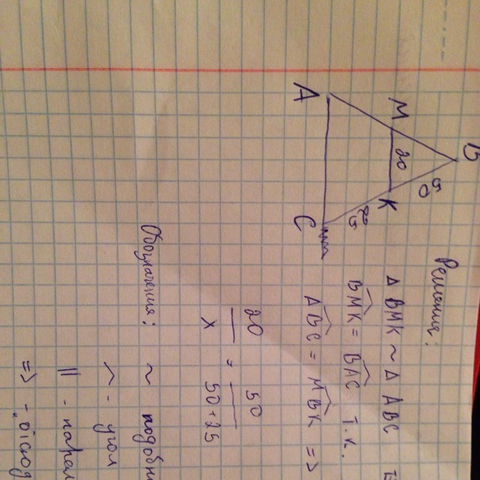 B
M
20
K
50
25
A
C
Решение:
Δ BMK ~ Δ ABC
BMK = BAC т.к.
ABC = MBK =>
20 = 50
x 50+25
Обозначения: ~ подобн
^ - угол
|| - парал
=> -